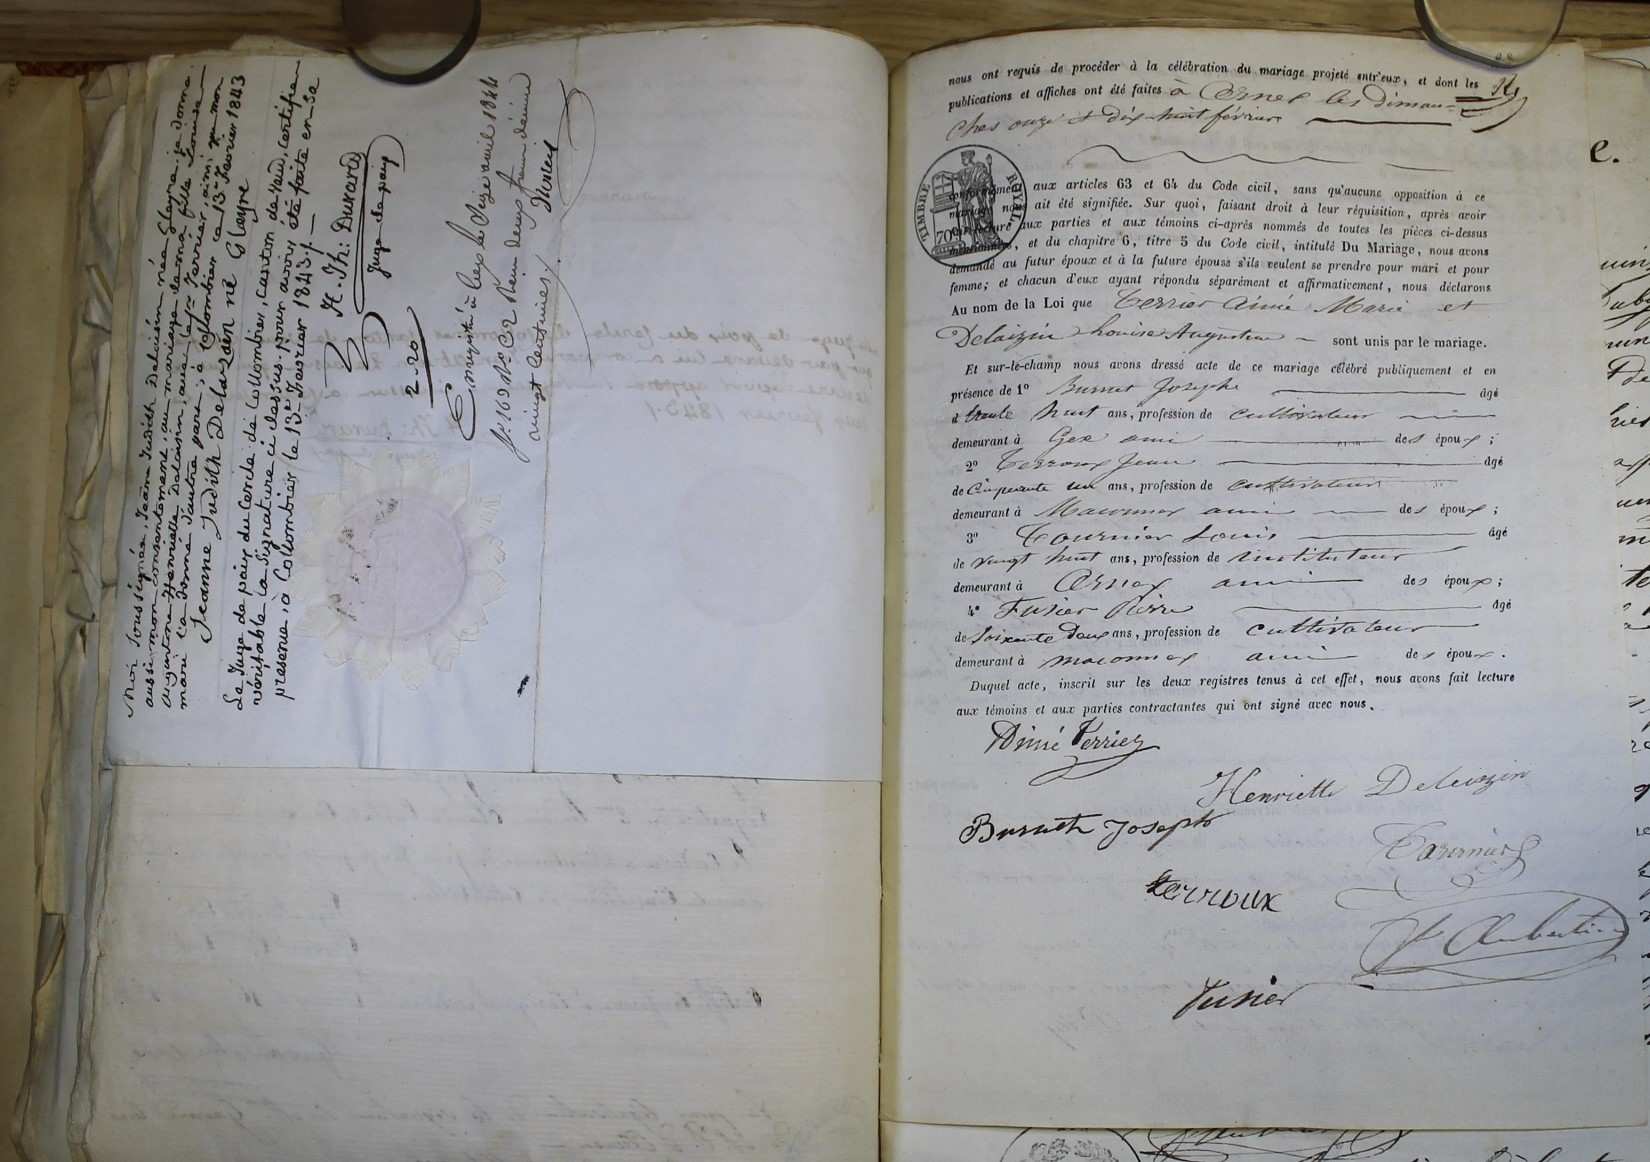 Moi soussignée, Jeanne Judith Delaisin née Glayre je donne
aussi mon consentement, au mariage de ma fille Louise
Augustine Henriette Delaisin, avec le Sr Terrier, ainsi que mon
mari l'a donné d'autre part, à Collombier ce 13e Février 1843
Jeanne Judith Delaisin né Glayre
Le Juge de paix du Cercle de Collombier, canton de Vaud, certifie
véritable la Signature ci dessus pour avoir été faite en sa
présence, à Collombier le 13e Février 1843./.
H. Th: Durard
Juge de paix
2-20
Enregistré à Gex le Seize avril 1844
fo 169 Ro C 2 Reçu deux francs décime
vingt centimes /.
nous ont requis de procéder à la célébration du mariage projeté entr'eux, et dont les
publications et affiches ont été faites à Ornex les diman-
ches onze et dix-huit février
TIMBRE ROYAL
70
conformément aux articles 63 et 64 du Code civil, sans qu'aucune opposition à ce
mariage nous ait été signifiée. Sur quoi, faisant droit à leur réquisition, après avoir
donné lecture aux parties et aux témoins ci-après nommés de toutes les pièces ci-dessus
mentionnées, et du chapitre 6, titre 5 du Code civil, intitulé Du Mariage, nous avons
demandé au futur époux et à la future épouse s'ils veulent se prendre pour mari et pour
femme; et chacun d'eux ayant répondu séparément et affirmativement, nous déclarons
Au nom de la Loi que Terrier Aimé Marie et
Delaizin Louise Augustine sont unis par le mariage.
Et sur-le-champ nous avons dressé acte de ce mariage célébré publiquement et en
présence de 1o Burnet Josephe âgé
d trente huit ans, profession de cultivateur
demeurant à Gex ami des époux;
2o Terroux Jean âgé
de Cinquante un ans, profession de cultivateur
demeurant à Maconnex ami des époux;
3o Tournier Louis âgé
de vingt huit ans, profession de instituteur
demeurant à Ornex ami des époux;
4o Fusier Pierre âgé
de Soixante Deux ans, profession de cultivateur
demeurant à maconnex ami des époux.
Duquel acte, inscrit sur les deux registres tenus à cet effet, nous avons fait lecture
aux témoins et aux parties contractantes qui ont signé avec nous.
Aimé Terrier
Henriette Delaizin
Burnet Joseph
Tournier
terroux
Aubertin
Fusier